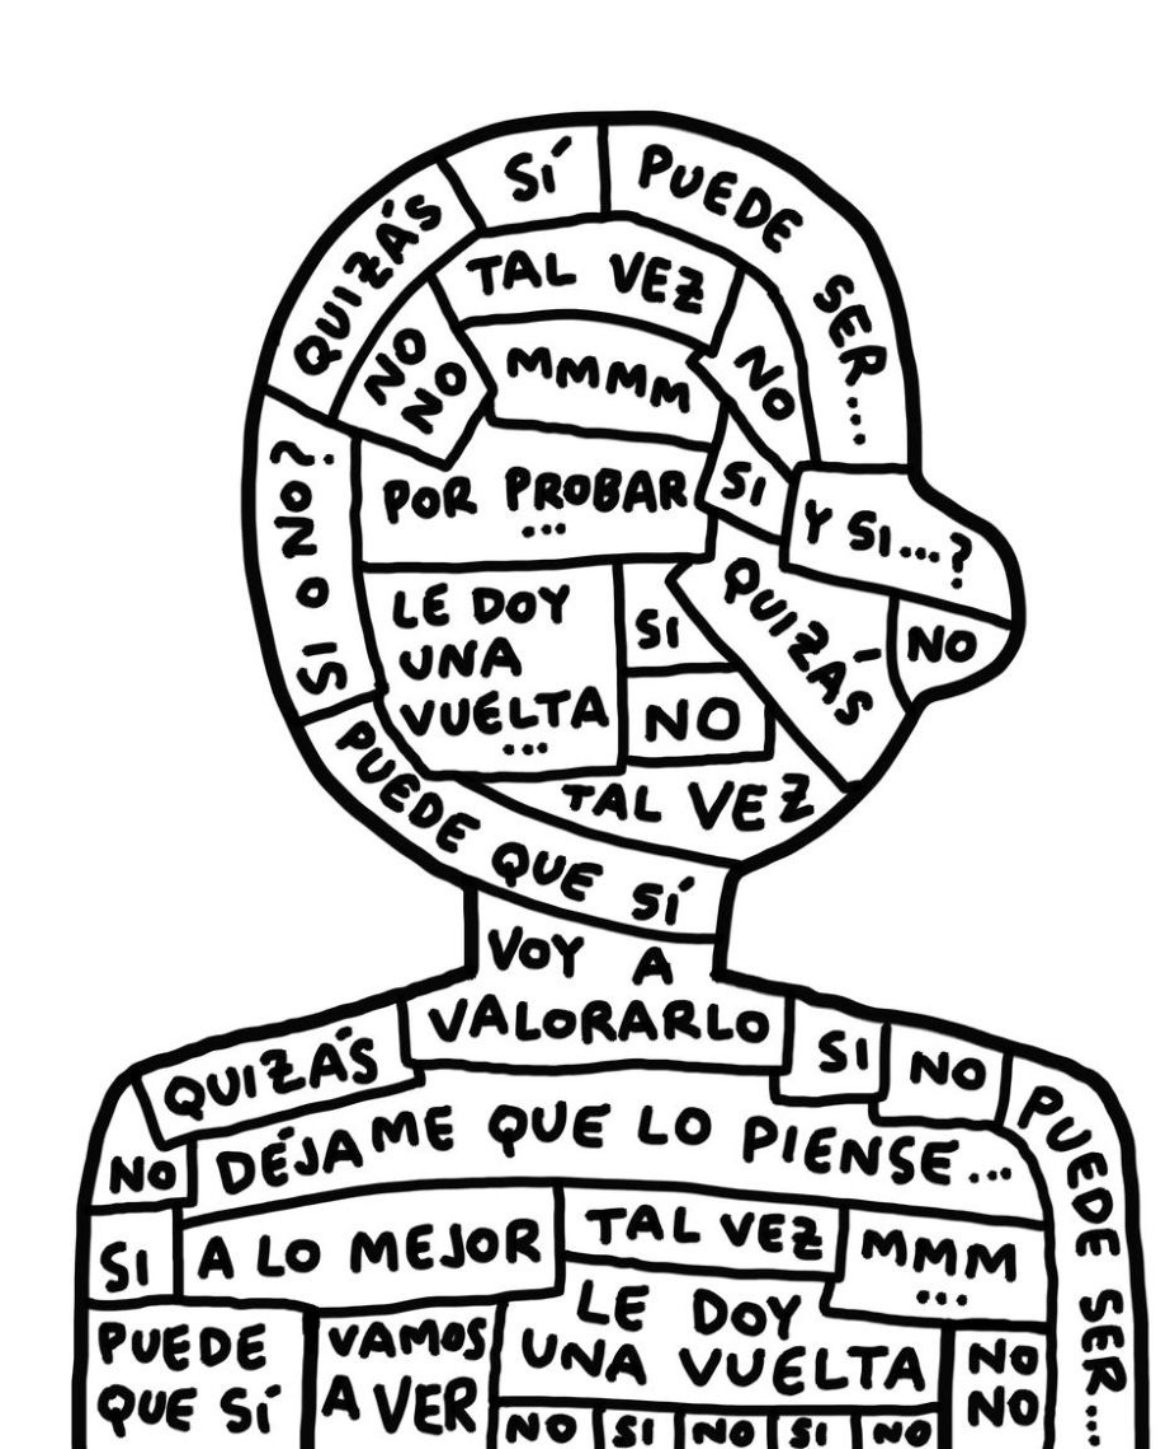 SÍ
PUEDE SER...
QUIZÁS
TAL VEZ
NO
NO
MMMM
NO
SI O NO?
POR PROBAR
...
SI
Y SI...?
LE DOY
UNA
VUELTA
...
SI
QUIZÁS
NO
NO
TAL VEZ
PUEDE QUE SÍ
VOY A
VALORARLO
QUIZÁS
SI
NO
PUEDE SER...
NO
DÉJAME QUE LO PIENSE...
SI
A LO MEJOR
TAL VEZ
MMM
...
PUEDE
QUE SÍ
VAMOS
A VER
LE DOY
UNA VUELTA
NO
NO
NO
SI
NO
SI
NO